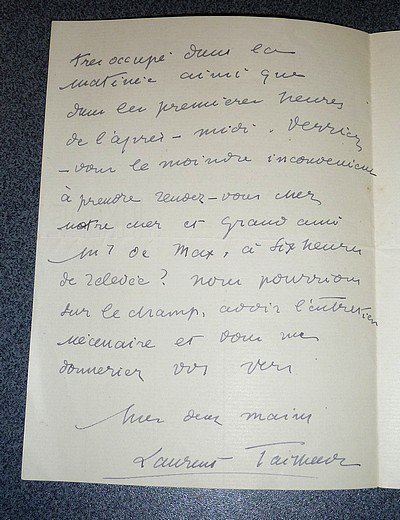 très occupé dans la
matinée ainsi que
dans les premières heures
de l'après-midi. Verriez
-vous le moindre inconvénient
à prendre rendez-vous chez
notre cher et grand ami
Mr de Max, à six heures
de relevée? nous pourrions
sur le champ, avoir l'entretien
nécessaire et vous me
donneriez vos vers
Mes deux mains
Laurent Tailhade